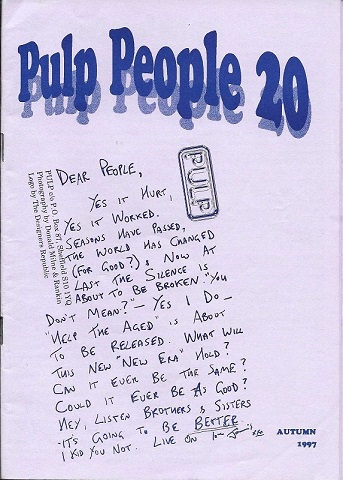 Pulp People 20
PULP
DEAR PEOPLE,
YES IT HURT,
YES IT WORKED.
SEASONS HAVE PASSED,
THE WORLD HAS CHANGED
(FOR GOOD?) & NOW AT
LAST THE SILENCE IS
ABOUT TO BE BROKEN. "YOU
DON'T MEAN?" – YES I DO –
"HELP THE AGED" IS ABOUT
TO BE RELEASED. WHAT WILL
THIS NEW "NEW ERA" HOLD?
CAN IT EVER BE THE SAME?
COULD IT EVER BE AS GOOD?
HEY, LISTEN BROTHERS & SISTERS
- IT'S GOING TO BE BETTER
I KID YOU NOT. LIVE ON
PULP c/o P.O. Box 87, Sheffield S10 1YU
Photography by Donald Milne & Rankin
Logo by The Designers Republic
AUTUMN
1997